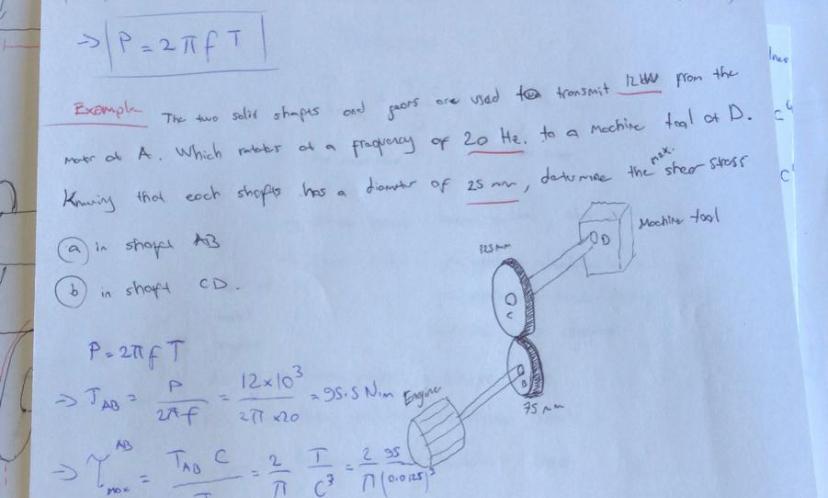 ⇒ P = 2πfT
Example The two solid shapts and gears are used to transmit 12kW from the
motor at A. Which rotates at a frequency of 20 Hz. to a machine tool at D.
Knowing that each shafts has a diameter of 25 mm, determine the max. shear stress
(a) in shaft AB
(b) in shaft CD.
Machine tool
D
125 mm
C
B
75 mm
Engine
P = 2πfT
⇒ T_AB = P / 2πf = 12×10³ / 2π×20 = 95.5 N.m
⇒ τ_max^AB = T_AB C / = 2/π T/C³ = 2/π 95/(0.0125)³
c⁴
c